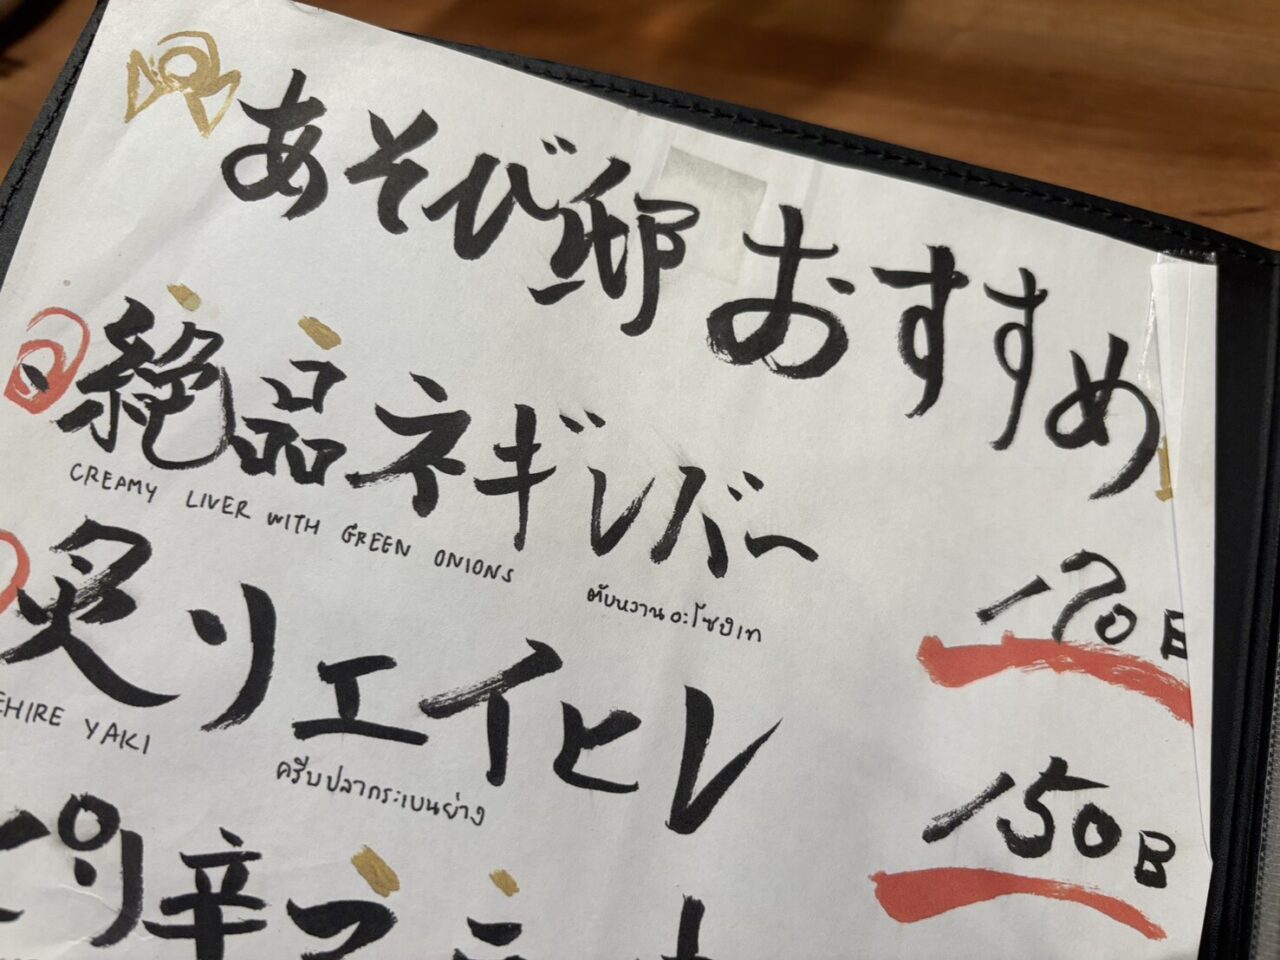 あそび邸 おすすめ
絶品ネギレバー
CREAMY LIVER WITH GREEN ONIONS
ตับหวานอะโซบิเท
170B
炙りエイヒレ
EHIRE YAKI
ครีบปลากระเบนย่าง
150B
ピリ辛